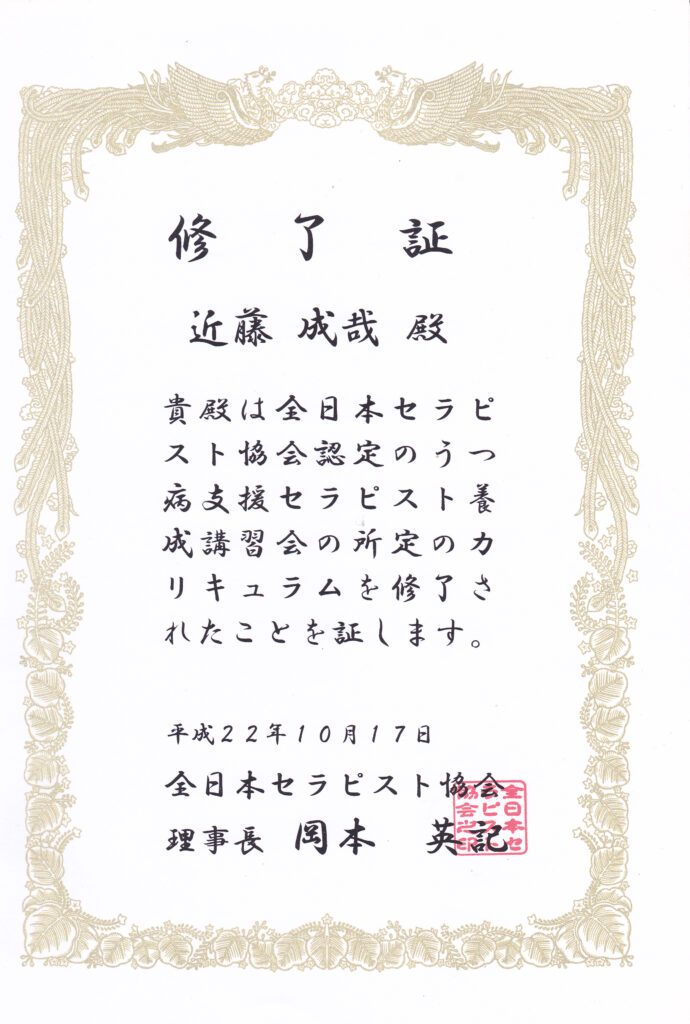 修了証
近藤 成哉 殿
貴殿は全日本セラピ
スト協会認定のうつ
病支援セラピスト養
成講習会の所定のカ
リキュラムを修了さ
れたことを証します。
平成22年10月17日
全日本セラピスト協会
理事長 岡本 英記
全日本セ
ラピスト
協会之印